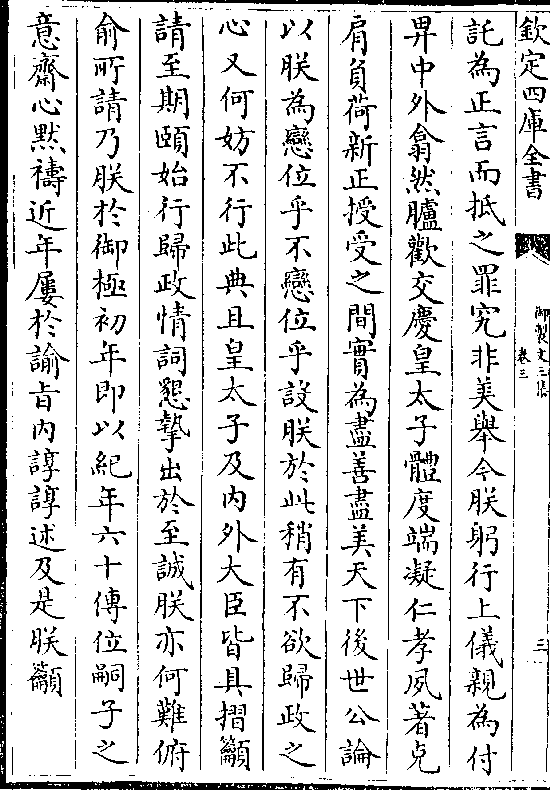 欽定四庫全書
御製文三集
卷三
三
託為正言而抵之罪究非美舉今朕躬行上儀親為付
畀中外翕然臚歡交慶皇太子體度端凝仁孝夙著克
肩負荷新正授受之間實為盡善盡美天下後世公論
以朕為戀位乎不戀位乎設朕於此稍有不欲歸政之
心又何妨不行此典且皇太子及内外大臣皆具摺籲
請至期頤始行歸政情詞懇摯出於至誠朕亦何難俯
俞所請乃朕於御極初年即以紀年六十傳位嗣子之
意齋心黙禱近年屢於諭旨内諄諄述及是朕籲